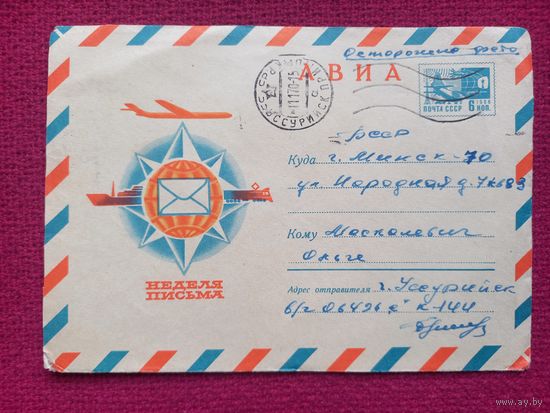 Осторожно фото
АВИА
УССУРИЙСК
ПОЧТА СССР
1966
6 КОП.
БССР
Куда г. Минск-70
ул Народная д. 7
Кому Москалевич
Ольге
НЕДЕЛЯ
ПИСЬМА
Адрес отправителя г. Уссурийск
в/ч 06426 "е" к 144
www.ay.by